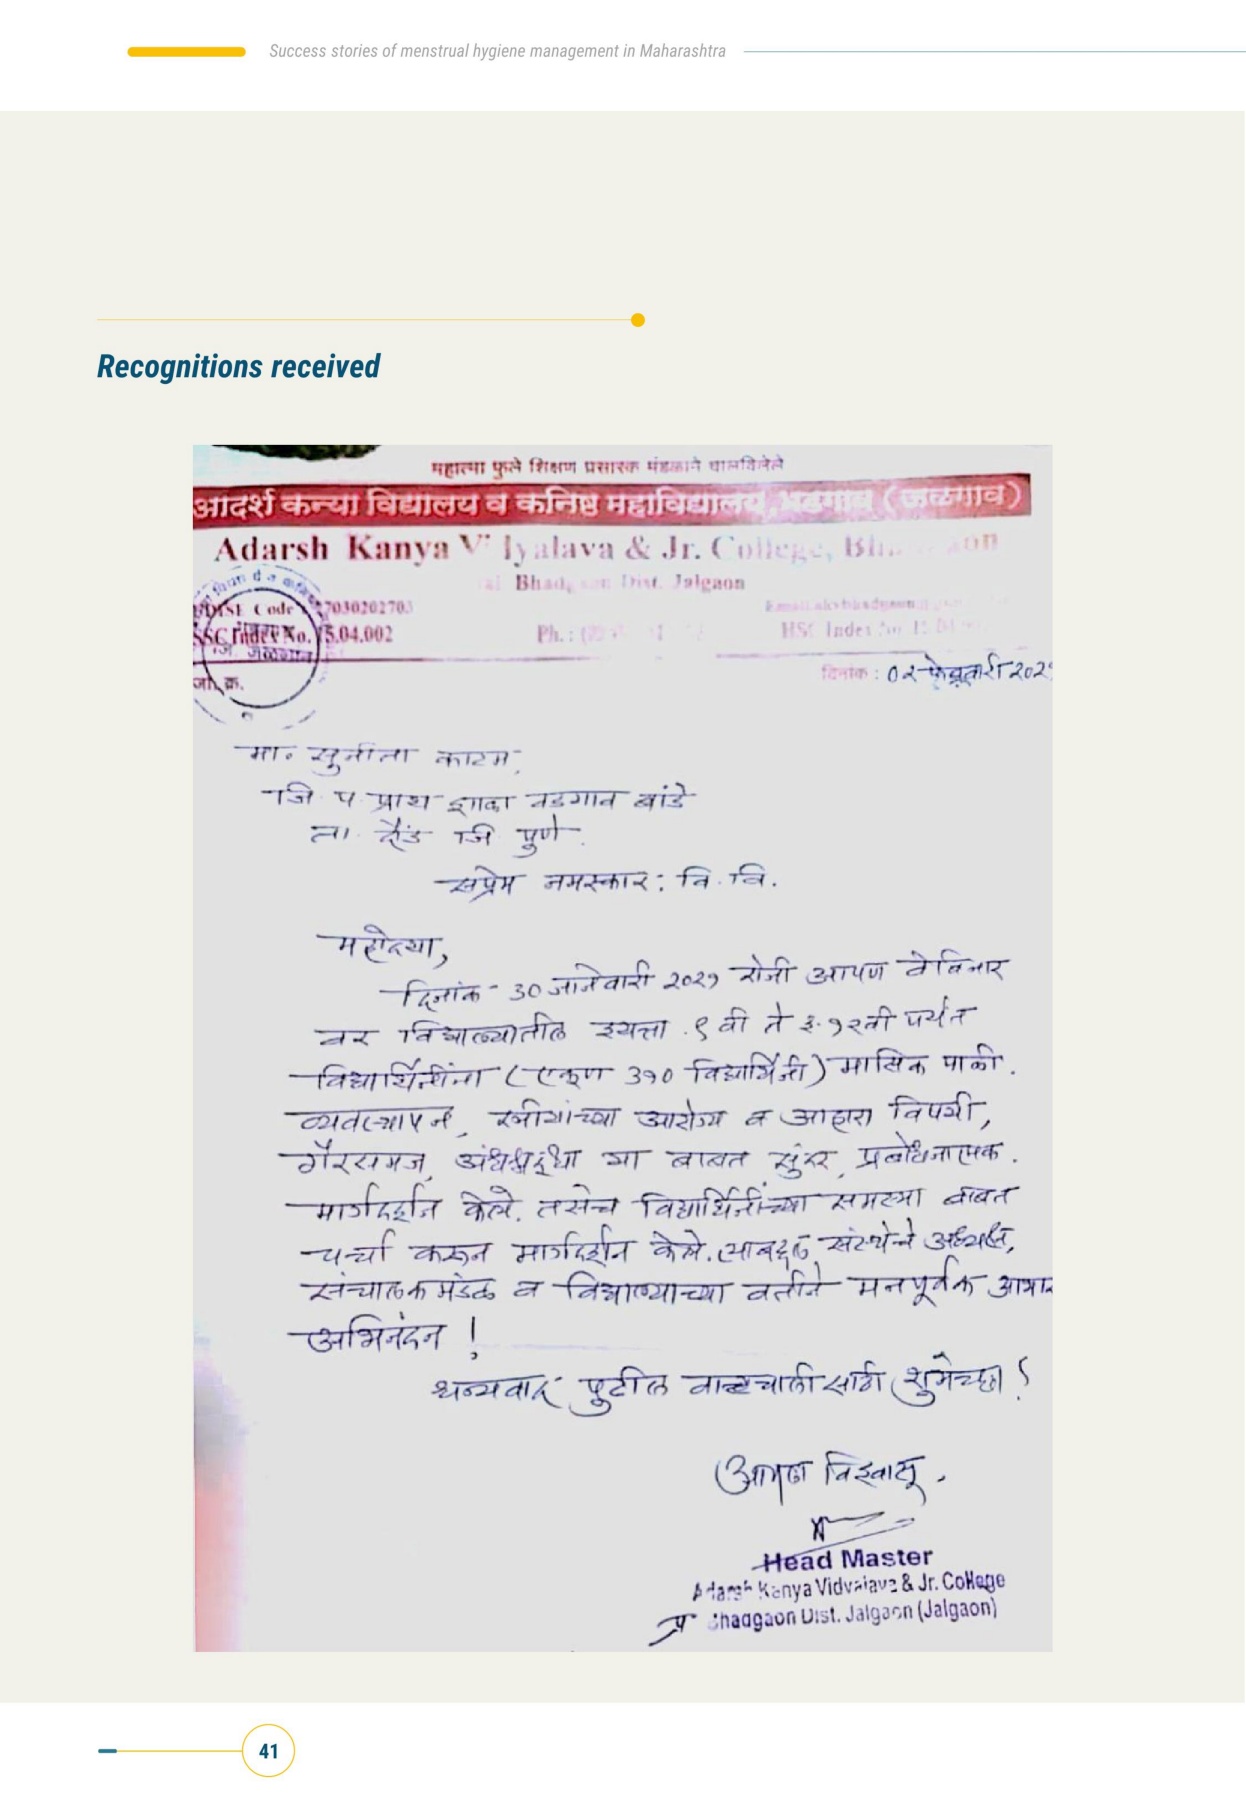 Success stories of menstrual hygiene management in Maharashtra
Recognitions received
महात्मा फुले शिक्षण प्रसारक मंडळाने चालविलेले
आदर्श कन्या विद्यालय व कनिष्ठ महाविद्यालय, भडगाव (जळगाव)
Adarsh Kanya & Jr. College,
Dist. Jalgaon
UDISE Code 27030202703
SSC Index No. 15.04.002
Ph. :
HSC Index No
जि. जळगाव
जा. क्र.
दिनांक : ०२ फेब्रुवारी
मा. सुनीता काटम,
जि प प्राथ शाळा वडगाव बांडे
ता. दौंड जि पुणे.
सप्रेम नमस्कार: वि. वि.
महोदया,
दिनांक - 30 जानेवारी २०२१ रोजी आपण वेबिनार
वर विद्यालयातील इयत्ता ९ वी ते इ. १२वी पर्यंत
विद्यार्थिनींना (एकूण ३१० विद्यार्थिनी) मासिक पाळी.
व्यवस्थापन, स्त्रीयांच्या आरोग्य व आहारा विषयी,
गैरसमज, अंधश्रद्धा या बाबत सुंदर, प्रबोधनात्मक.
मार्गदर्शन केले. तसेच विद्यार्थिनींच्या समस्या बाबत
चर्चा करून मार्गदर्शन केले. त्याबद्दल संस्थेचे अध्यक्ष,
संचालक मंडळ व विद्यालयाच्या वतीने मनपूर्वक आभार
अभिनंदन !
धन्यवाद पुढील वाटचाली साठी शुभेच्छा !
आपला विश्वासू.
Head Master
Adarsh Kanya Vidyalaya & Jr. College
Bhadgaon Dist. Jalgaon (Jalgaon)
41